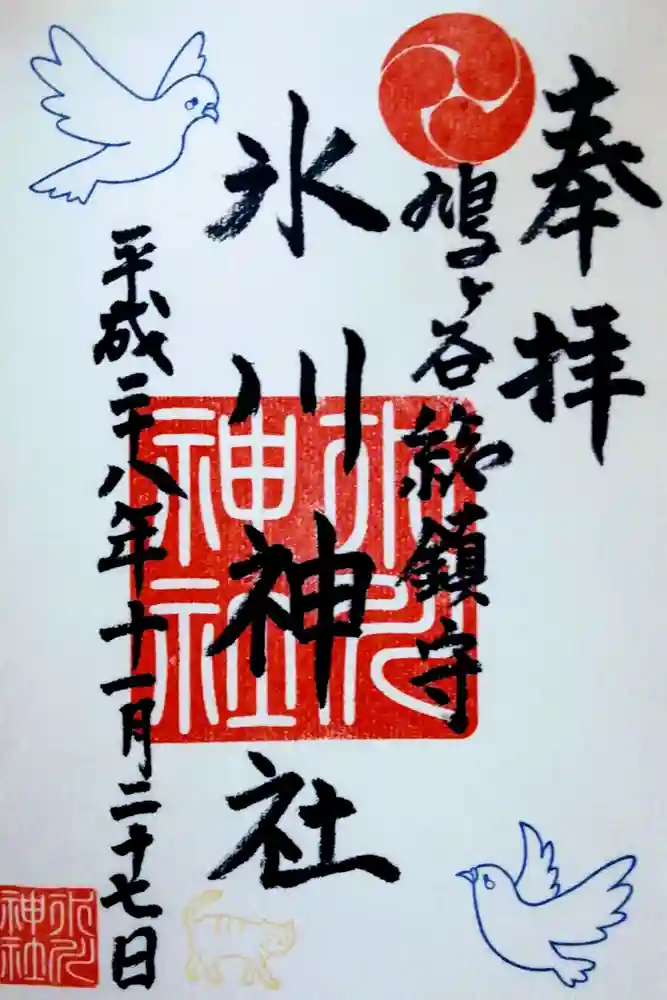 奉拝
鳩ヶ谷総鎮守
氷川神社
平成二十八年十一月二十七日
氷川神社
氷川神社